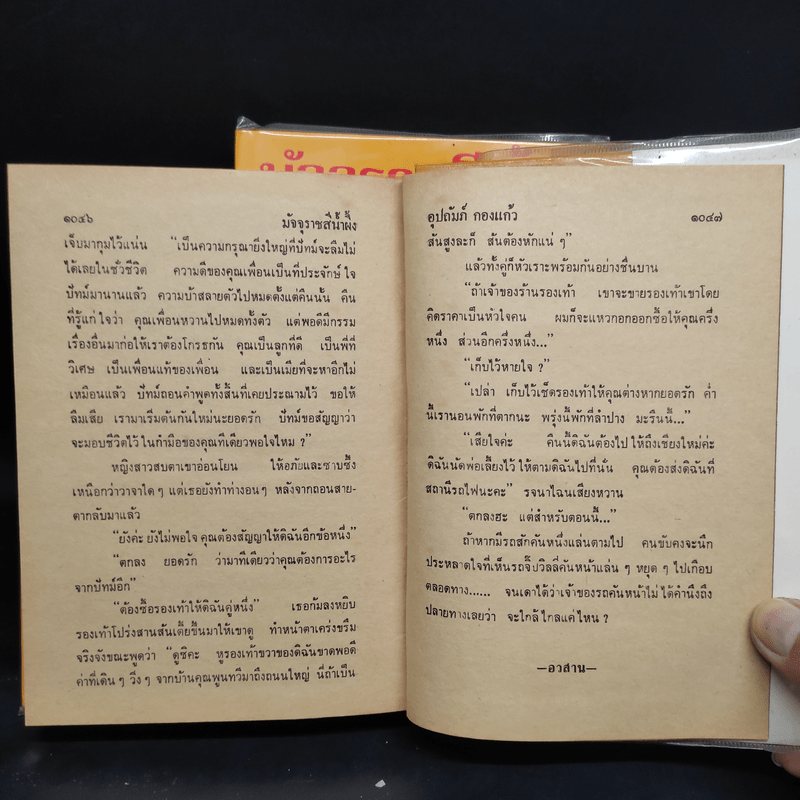 ๑๐๔๖ มัจจุราชสีน้ำผึ้ง
เจ็บมากุมไว้แน่น "เป็นความกรุณายิ่งใหญ่ที่ปัทม์จะลืมไม่
ได้เลยในชั่วชีวิต ความดีของคุณเพื่อนเป็นที่ประจักษ์ใจ
ปัทม์มานานแล้ว ความบ้าสลายตัวไปหมดตั้งแต่คืนนั้น คืน
ที่รู้แก่ใจว่า คุณเพื่อนหวานไปหมดทั้งตัว แต่พอดีมีกรรม
เรื่องอื่นมาก่อให้เราต้องโกรธกัน คุณเป็นลูกที่ดี เป็นพี่ที่
วิเศษ เป็นเพื่อนแท้ของเพื่อน และเป็นเมียที่จะหาอีกไม่
เหมือนแล้ว ปัทม์ถอนคำพูดทั้งสิ้นที่เคยประณามไว้ ขอให้
ลืมเสีย เรามาเริ่มต้นกันใหม่นะยอดรัก ปัทม์ขอสัญญาว่า
จะมอบชีวิตไว้ในกำมือของคุณทีเดียวพอใจไหม ?"
หญิงสาวสบตาเขาอ่อนโยน ให้อภัยและซาบซึ้ง
เหนือกว่าวาจาใด ๆ แต่เธอยังทำท่างอน ๆ หลังจากถอนสาย-
ตากลับมาแล้ว
"ยังค่ะ ยังไม่พอใจ คุณต้องสัญญาให้ดิฉันอีกข้อหนึ่ง"
"ตกลง ยอดรัก ว่ามาทีเดียวว่าคุณต้องการอะไร
จากปัทม์อีก"
"ต้องซื้อรองเท้าให้ดิฉันคู่หนึ่ง" เธอก้มลงหยิบ
รองเท้าโปร่งสานส้นเตี้ยขึ้นมาให้เขาดู ทำหน้าตาเคร่งขรึม
จริงจังขณะพูดว่า "ดูซิคะ หูรองเท้าขวาของดิฉันขาดพอดี
ค่าที่เดิน ๆ วิ่ง ๆ จากบ้านคุณพูนทวีมาถึงถนนใหญ่ นี่ถ้าเป็น
อุปถัมภ์ กองแก้ว ๑๐๔๗
ส้นสูงละก็ ส้นต้องหักแน่ ๆ"
แล้วทั้งคู่ก็หัวเราะพร้อมกันอย่างชื่นบาน
"ถ้าเจ้าของร้านรองเท้า เขาจะขายรองเท้าเขาโดย
คิดราคาเป็นหัวใจคน ผมก็จะแหวกอกออกซื้อให้คุณครึ่ง
หนึ่ง ส่วนอีกครึ่งหนึ่ง..."
"เก็บไว้หายใจ ?"
"เปล่า เก็บไว้เช็ดรองเท้าให้คุณต่างหากยอดรัก ค่ำ
นี้เรานอนพักที่ตากนะ พรุ่งนี้พักที่ลำปาง มะรืนนี้..."
"เสียใจค่ะ คืนนี้ดิฉันต้องไปให้ถึงเชียงใหม่ค่ะ
ดิฉันนัดพ่อเลี้ยงไว้ ให้ตามดิฉันไปที่นั่น คุณต้องส่งดิฉันที่
สถานีรถไฟนะคะ" รจนาไฉนเสียงหวาน
"ตกลงฮะ แต่สำหรับตอนนี้..."
ถ้าหากมีรถสักคันหนึ่งแล่นตามไป คนขับคงจะนึก
ประหลาดใจที่เห็นรถจี๊ปวิลลี่คันหน้าแล่น ๆ หยุด ๆ ไปเกือบ
ตลอดทาง...... จนเดาได้ว่าเจ้าของรถคันหน้าไม่ได้คำนึงถึง
ปลายทางเลยว่า จะใกล้ไกลแค่ไหน ?
—อวสาน—